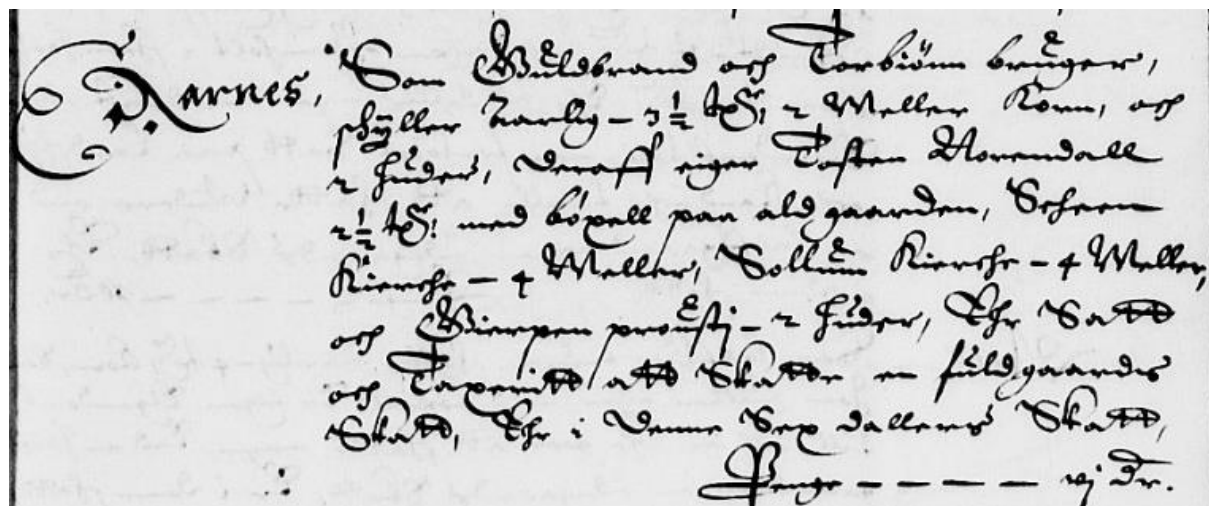 Aarnes,
Som Guldbrand och Torbiønn bruger,
schÿller aarlig – 3½ tß: 2 Meller Korn, och
2 huder, deraff eiger Tosten Norendall
2½ tß: med bøxell paa ald gaarden, Scheen
Kierche – 4 Meller, Sollum Kierche – 4 Meller,
och Gierpen proustj – 2 huder, Ehr Satt
och Taxeritt att Skatte en fuld gaards
Skatt, Ehr i denne Sex dallers Skatt,
Penge – – – – vj dr.